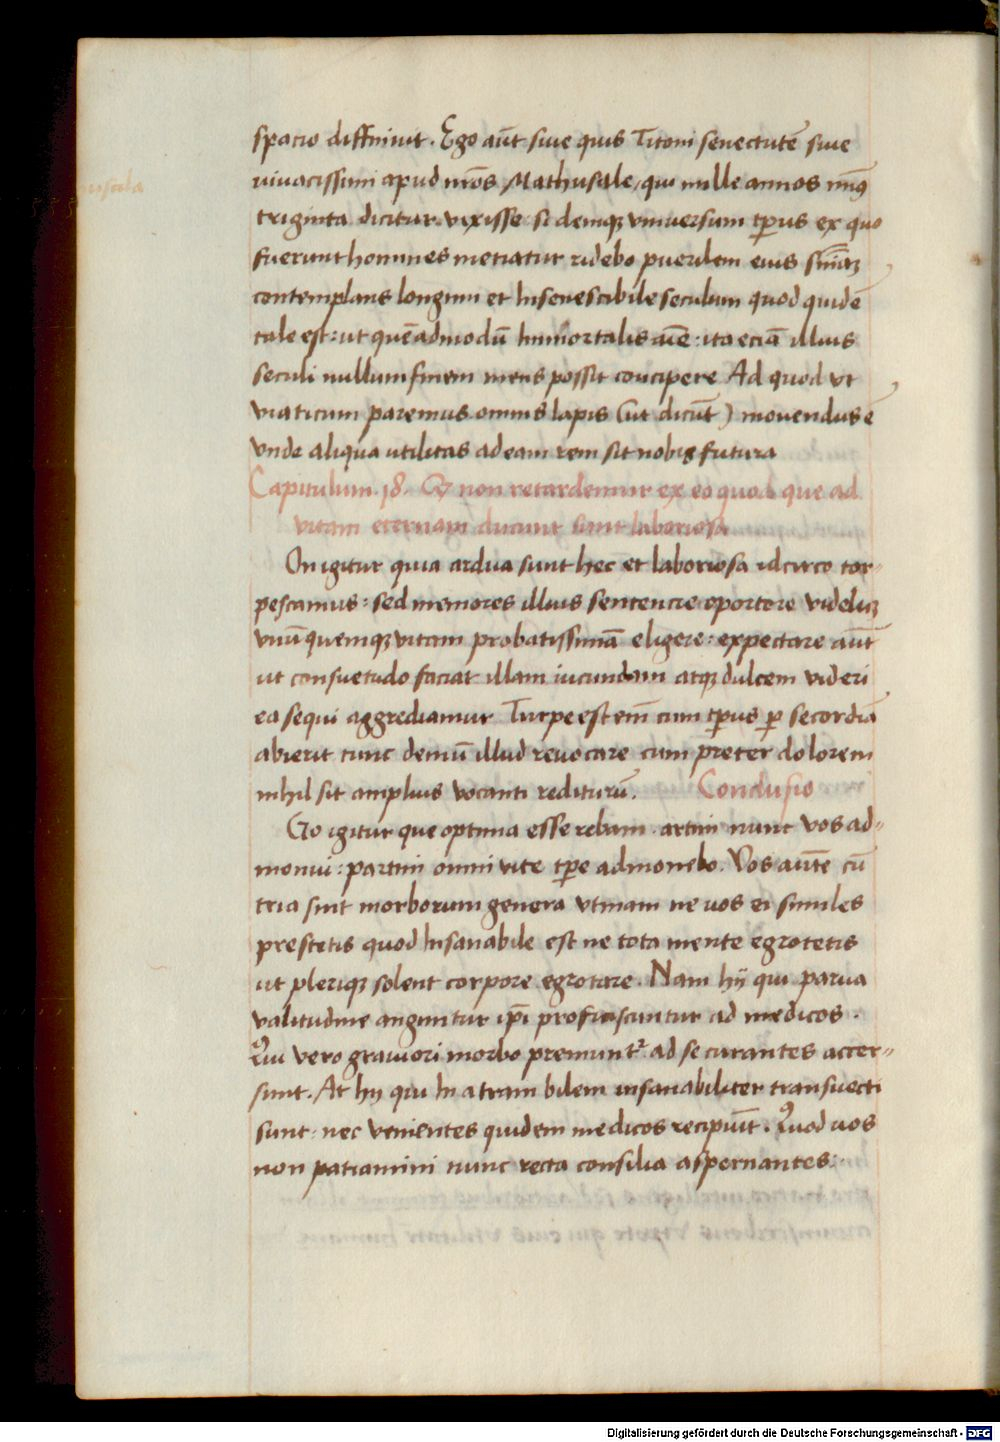 spacio diffiniut. Ego aūt siue quis Titoni senectutē siue
viuacissimi apud nr̄os Mathusale, qui mille annos min9
triginta dicitur vixisse si deniq3 vniuersum tp̄us ex quo
fuerunt homines metiatur ridebo puerilem eius snīaz
contemplans longum et Insenescibile seculum quod quidē
tale est: ut quēadmodū Immortalis aīe: ita eciā illius
seculi nullum finem mens possit concipere Ad quod vt
viaticum paremus omnis lapis (ut dicūt) mouendus ē
vnde aliqua utilitas ad eam rem sit nobis futura
Capitulum .18. Q3 non retardemur ex eo quod que ad
vitam eternam ducunt sunt laboriosa
On igitur quia ardua sunt hec et laboriosa idcirco tor-
pescamus: sed memores illius sentencie oportere videlicz
vnūquemq3 vitam probatissimā eligere: expectare aūt
ut consuetudo faciat illam iucundam atq3 dulcem videri
ea sequi aggrediamur Turpe est em̄ cum tp̄us p secordiā
abierit tunc demū illud reuocare cum preter dolorem
nihil sit amplius vocanti rediturū. Conclusio
Go igitur que optima esse rebam .artim nunc vos ad-
monui: partim omni vite tp̄e admonebo. Vos autē cū
tria sint morborum genera vtinam ne uos ei similes
prestetis quod Insanabile est ne tota mente egrotetis
ut pleriq3 solent corpore egrotare. Nam hij qui parua
valitudine anguntur ip̄i proficiscuntur ad medicos.
Qui vero grauiori morbo premuntr ad se curantes accer-
sunt. At hij qui In atram bilem insanabiliter transuecti
sunt: nec venientes quidem medicos recipiūt. Quod uos
non patiamini nunc recta consilia aspernantes:
Digitalisierung gefördert durch die Deutsche Forschungsgemeinschaft - DFG